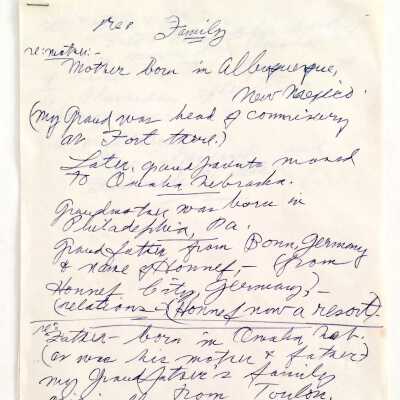 re: Family
re: mother:-
Mother born in Albuquerque,
New Mexico.
(my Grand was head of commissary
at Fort there.)
Later, grandparents moved
to Omaha, Nebraska.
Grandmother was born in
Philadelphia, Pa.
Grandfather from Bonn, Germany
& name of Honnef,- (from
Honnef City, Germany,)-
(relations - (Honnef now a resort).
re:
Father - born in Omaha, Neb.
(as was his mother & father)
my Grandfather's family
from Toulon,